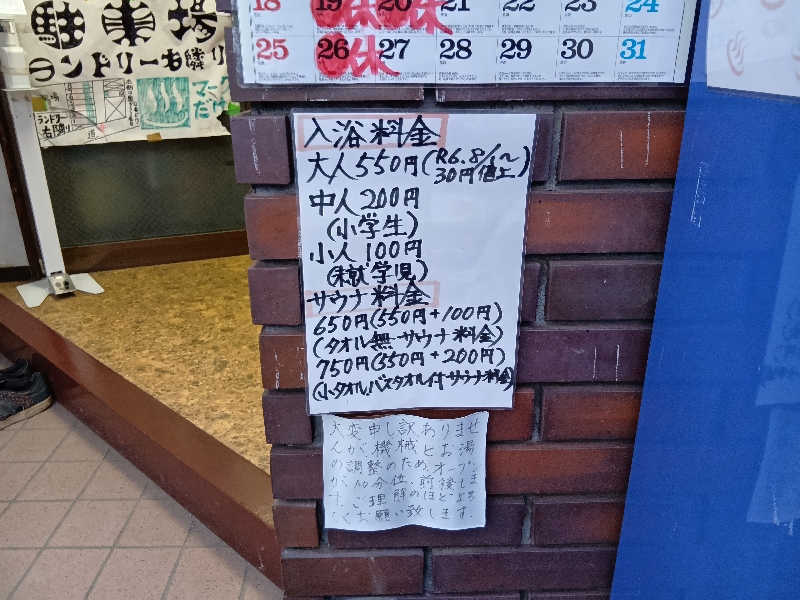 駐車場
ランドリー右隣り
ランドリー
右隣り
道
18 19 20 21 22 23 24
休 休
25 26 27 28 29 30 31
休
入浴料金
大人550円(R6.8/1〜
30円値上)
中人200円
(小学生)
小人100円
(未就学児)
サウナ料金
650円(550円+100円)
(タオル無サウナ料金)
750円(550円+200円)
(小タオル、バスタオル付サウナ料金)
大変申し訳ありませ
んが、機械とお湯
の調整のため、オープン
が10分位、前後しま
す。ご理解のほどよろ
しくお願い致します。